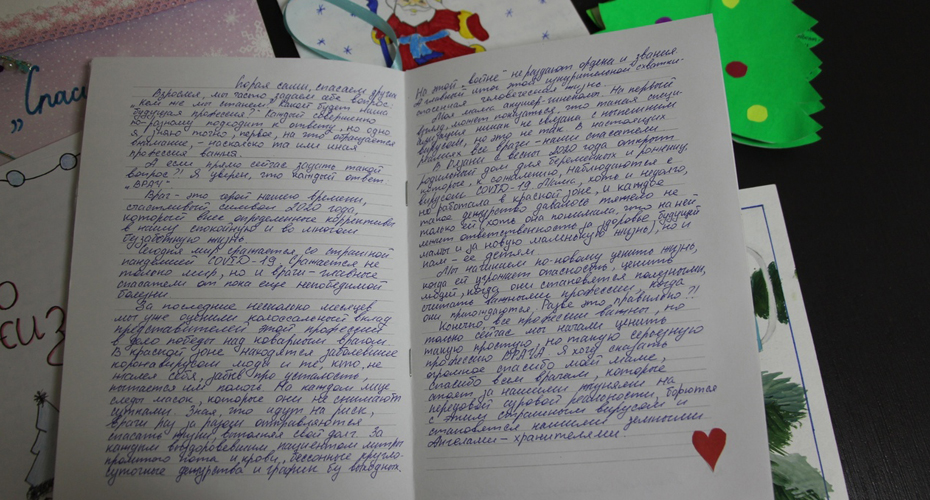 „Спаси
Сгорая сами, спасаем других
Взрослея, мы часто задаем себе вопрос:
„Кем же мы станем?" Какой будет наша
будущая профессия? Каждый совершенно
по-разному подходит к ответу, но одно
я знаю точно, первое, на что обращается
внимание, – насколько та или иная
профессия важна.
А если прямо сейчас задать такой
вопрос?! Я уверен, что каждый ответит:
"ВРАЧ".
Врач – это герой нашего времени,
счастливый символ 2020 года,
который внес определенные коррективы
в нашу спокойную и во многом
беззаботную жизнь.
Сегодня мир сражается со страшной
пандемией COVID-19. Сражается не
только мир, но и врачи – главные
спасатели от пока еще непобедимой
болезни.
За последние несколько месяцев
мы уже оценили колоссальный вклад
представителей этой профессии
в дело победы над коварным врагом.
В красной зоне находятся заболевшие
коронавирусом люди и те, кто, не
жалея себя, забыв про усталость,
пытается им помочь. На каждом лице
следы масок, которые они не снимают
сутками. Зная, что идут на риск,
врачи раз за разом отправляются
спасать жизни, исполняя свой долг. За
каждым выздоровевшим пациентом литры
пролитого пота и крови, бессонные кругло-
суточные дежурства и график без выходных.
На этой „войне" не раздают ордена и звания
а главный итог этой изнурительной схватки-
спасенная человеческая жизнь.
Моя мама акушер-гинеколог. На первый
взгляд может показаться, что такая специ-
ализация никак не связана с нынешним
вирусом, но это не так. В настоящих
реалиях все врачи – наши спасатели.
В весны 2020 года открыт
родильный дом для беременных и рожениц,
которые, к сожалению, наблюдаются с
вирусом COVID-19. Мама, хоть и недолго,
но работала в красной зоне, и каждое
такое дежурство давалось тяжело не
только ей (хоть она понимала, что на ней
лежит ответственность за здоровье будущей
мамы и за новую маленькую жизнь), но и
нам – ее детям.
Мы начинаем по-новому ценить жизнь,
когда ей угрожает опасность, ценить
людей, когда они становятся полезными,
считать важными профессии, когда
они пригождаются. Разве это правильно?!
Конечно, все профессии важны, но
только сейчас мы начали ценить
такую простую, но такую серьезную
профессию ВРАЧА. Я хочу сказать
огромное спасибо моей маме,
спасибо всем врачам, которые
стоят за нашими жизнями на
передовой суровой реальности, борются
с этим страшным вирусом и
становятся нашими земными
Ангелами – хранителями.